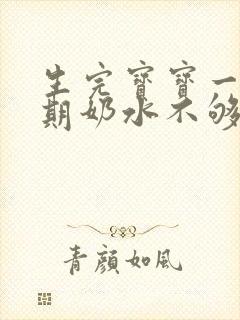 生完寶寶一
期奶水不够
青顔如風